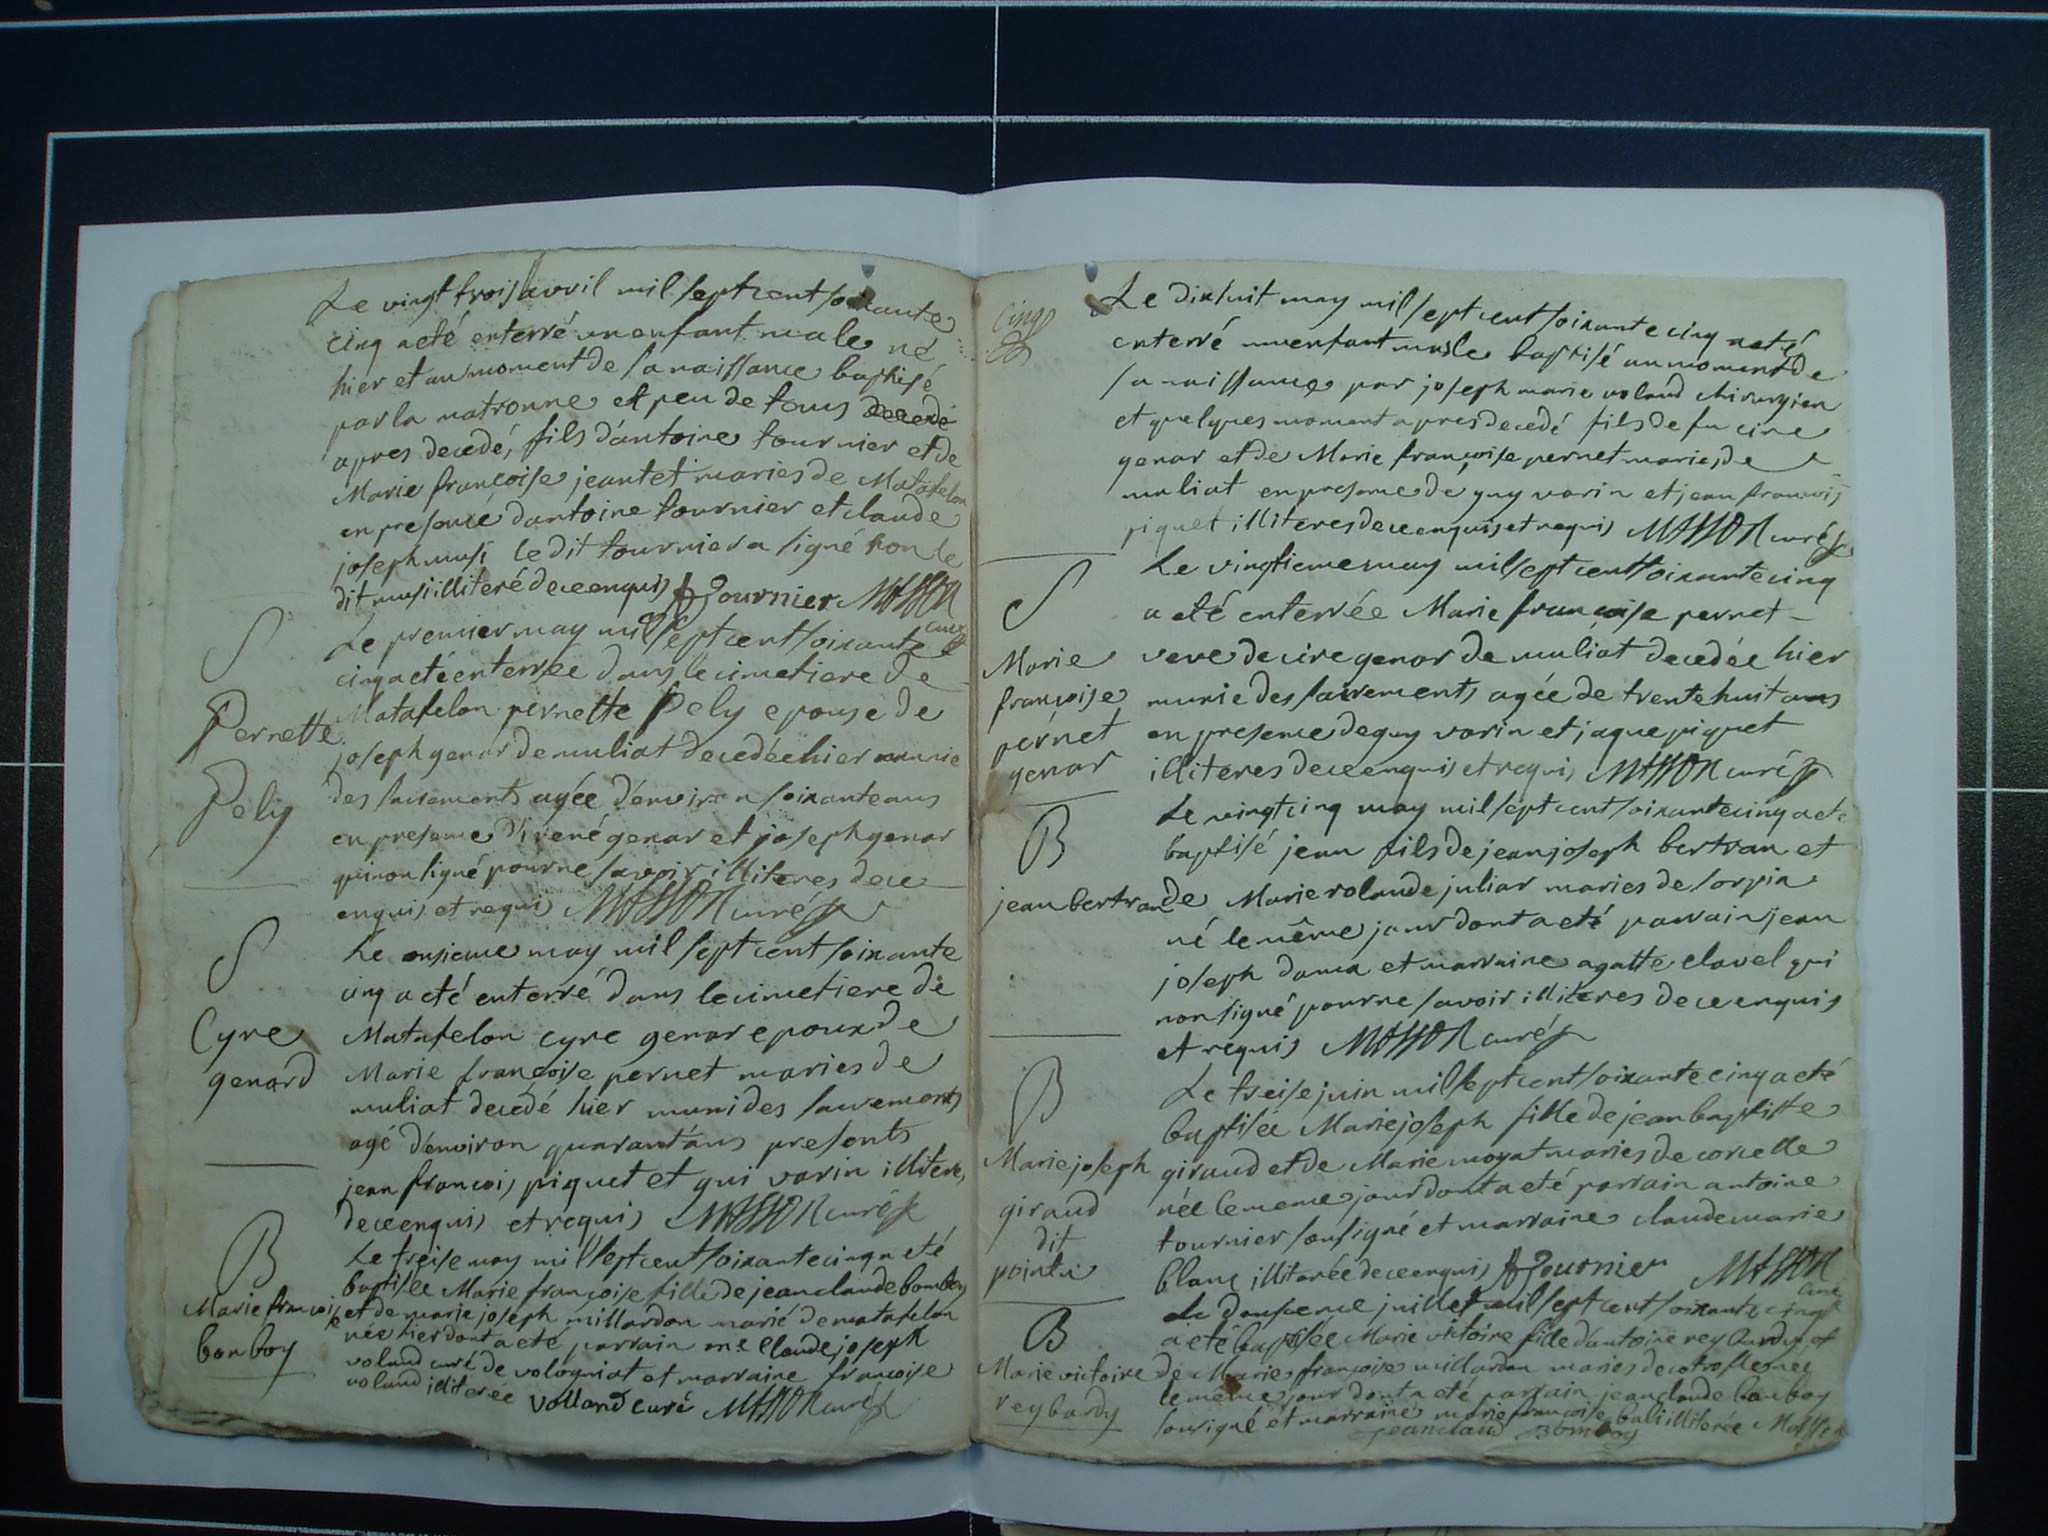 Le vingt trois avril mil sept cent soixante
cinq a eté enterré un enfant male né
hier et au moment de sa naissance baptisé
par la matronne et peu de tems decedé
apres decedé, fils d'antoine tournier et de
Marie françoise jeantet maries de Matafelon
en presence d'antoine tournier et claude
joseph musi le dit tournier a signé non le
dit musi illiteré de ce enquis A Tournier MASSON
curé
S
Pernette
Pely
Le premier may mil sept cent soixante
cinq a eté enterrée dans le cimetiere de
Matafelon pernette Pely epouse de
joseph genar de muliat decedée hier munie
des sacrements agée d'environ soixante ans
en presence d'irené genar et joseph genar
qui non signé pour ne savoir illiteres de ce
enquis et requis MASSON curé
S
Cyre
genard
Le onsieme may mil sept cent soixante
cinq a eté enterré dans le cimetiere de
Matafelon cyre genar epoux de
Marie françoise pernet maries de
muliat decedé hier muni des sacrements
agé d'environ quarant'ans presents
jean françois piquet et gui varin illiteres
de ce enquis et requis MASSON curé
B
Marie françoise
bonboy
Le treise may mil sept cent soixante cinq a eté
baptisée Marie françoise fille de jean claude bomboy
et de marie joseph millardon marié de matafelon
née hier dont a eté parrain me Claude joseph
voland curé de volognat et marraine françoise
voland illiterée Volland curé MASSON curé
cinq
Le dixhuit may mil sept cent soixante cinq a eté
enterré un enfant masle baptisé au moment de
sa naissance par joseph marie voland chirurgien
et quelques moment apres decedé fils de fu cire
genar et de Marie françoise pernet maries de
muliat en presence de guy varin et jean francois
piquet illiteres de ce enquis et requis MASSON curé
S
Marie
françoise
pernet
genar
Le vingtieme may mil sept cent soixante cinq
a eté enterrée Marie françoise pernet
veve de cire genar de muliat decedée hier
munie des sacrements agée de trente huit ans
en presence de guy varin et jaque piquet
illiteres de ce enquis et requis MASSON curé
B
jean bertran
Le vingt cinq may mil sept cent soixante cinq a eté
baptisé jean fils de jean joseph bertran et
de Marie rolande juliar maries de sorpia
né le même jour dont a eté parrain jean
joseph dama et marraine agatte clavel qui
non signé pour ne savoir illiteres de ce enquis
et requis MASSON curé
B
Marie joseph
giraud
dit
Le treise juin mil sept cent soixante cinq a eté
baptisée Marie joseph fille de jean baptiste
giraud et de Marie moyat maries de corcelle
née le meme jour dont a eté parrain antoine
tournier sousigné et marraine claude marie
blanc illiterée de ce enquis A Tournier MASSON
curé
B
Marie victoire
reybardy
Le dousieme juillet mil sept cent soixante cinq
a eté baptisée Marie victoire fille d'antoine rey bardy et
de Marie françoise millardon maries née
le même jour dont a eté parrain jean claude bonboy
sousigné et marraine marie françoise illiterée MASSON
jean claud Bomboy